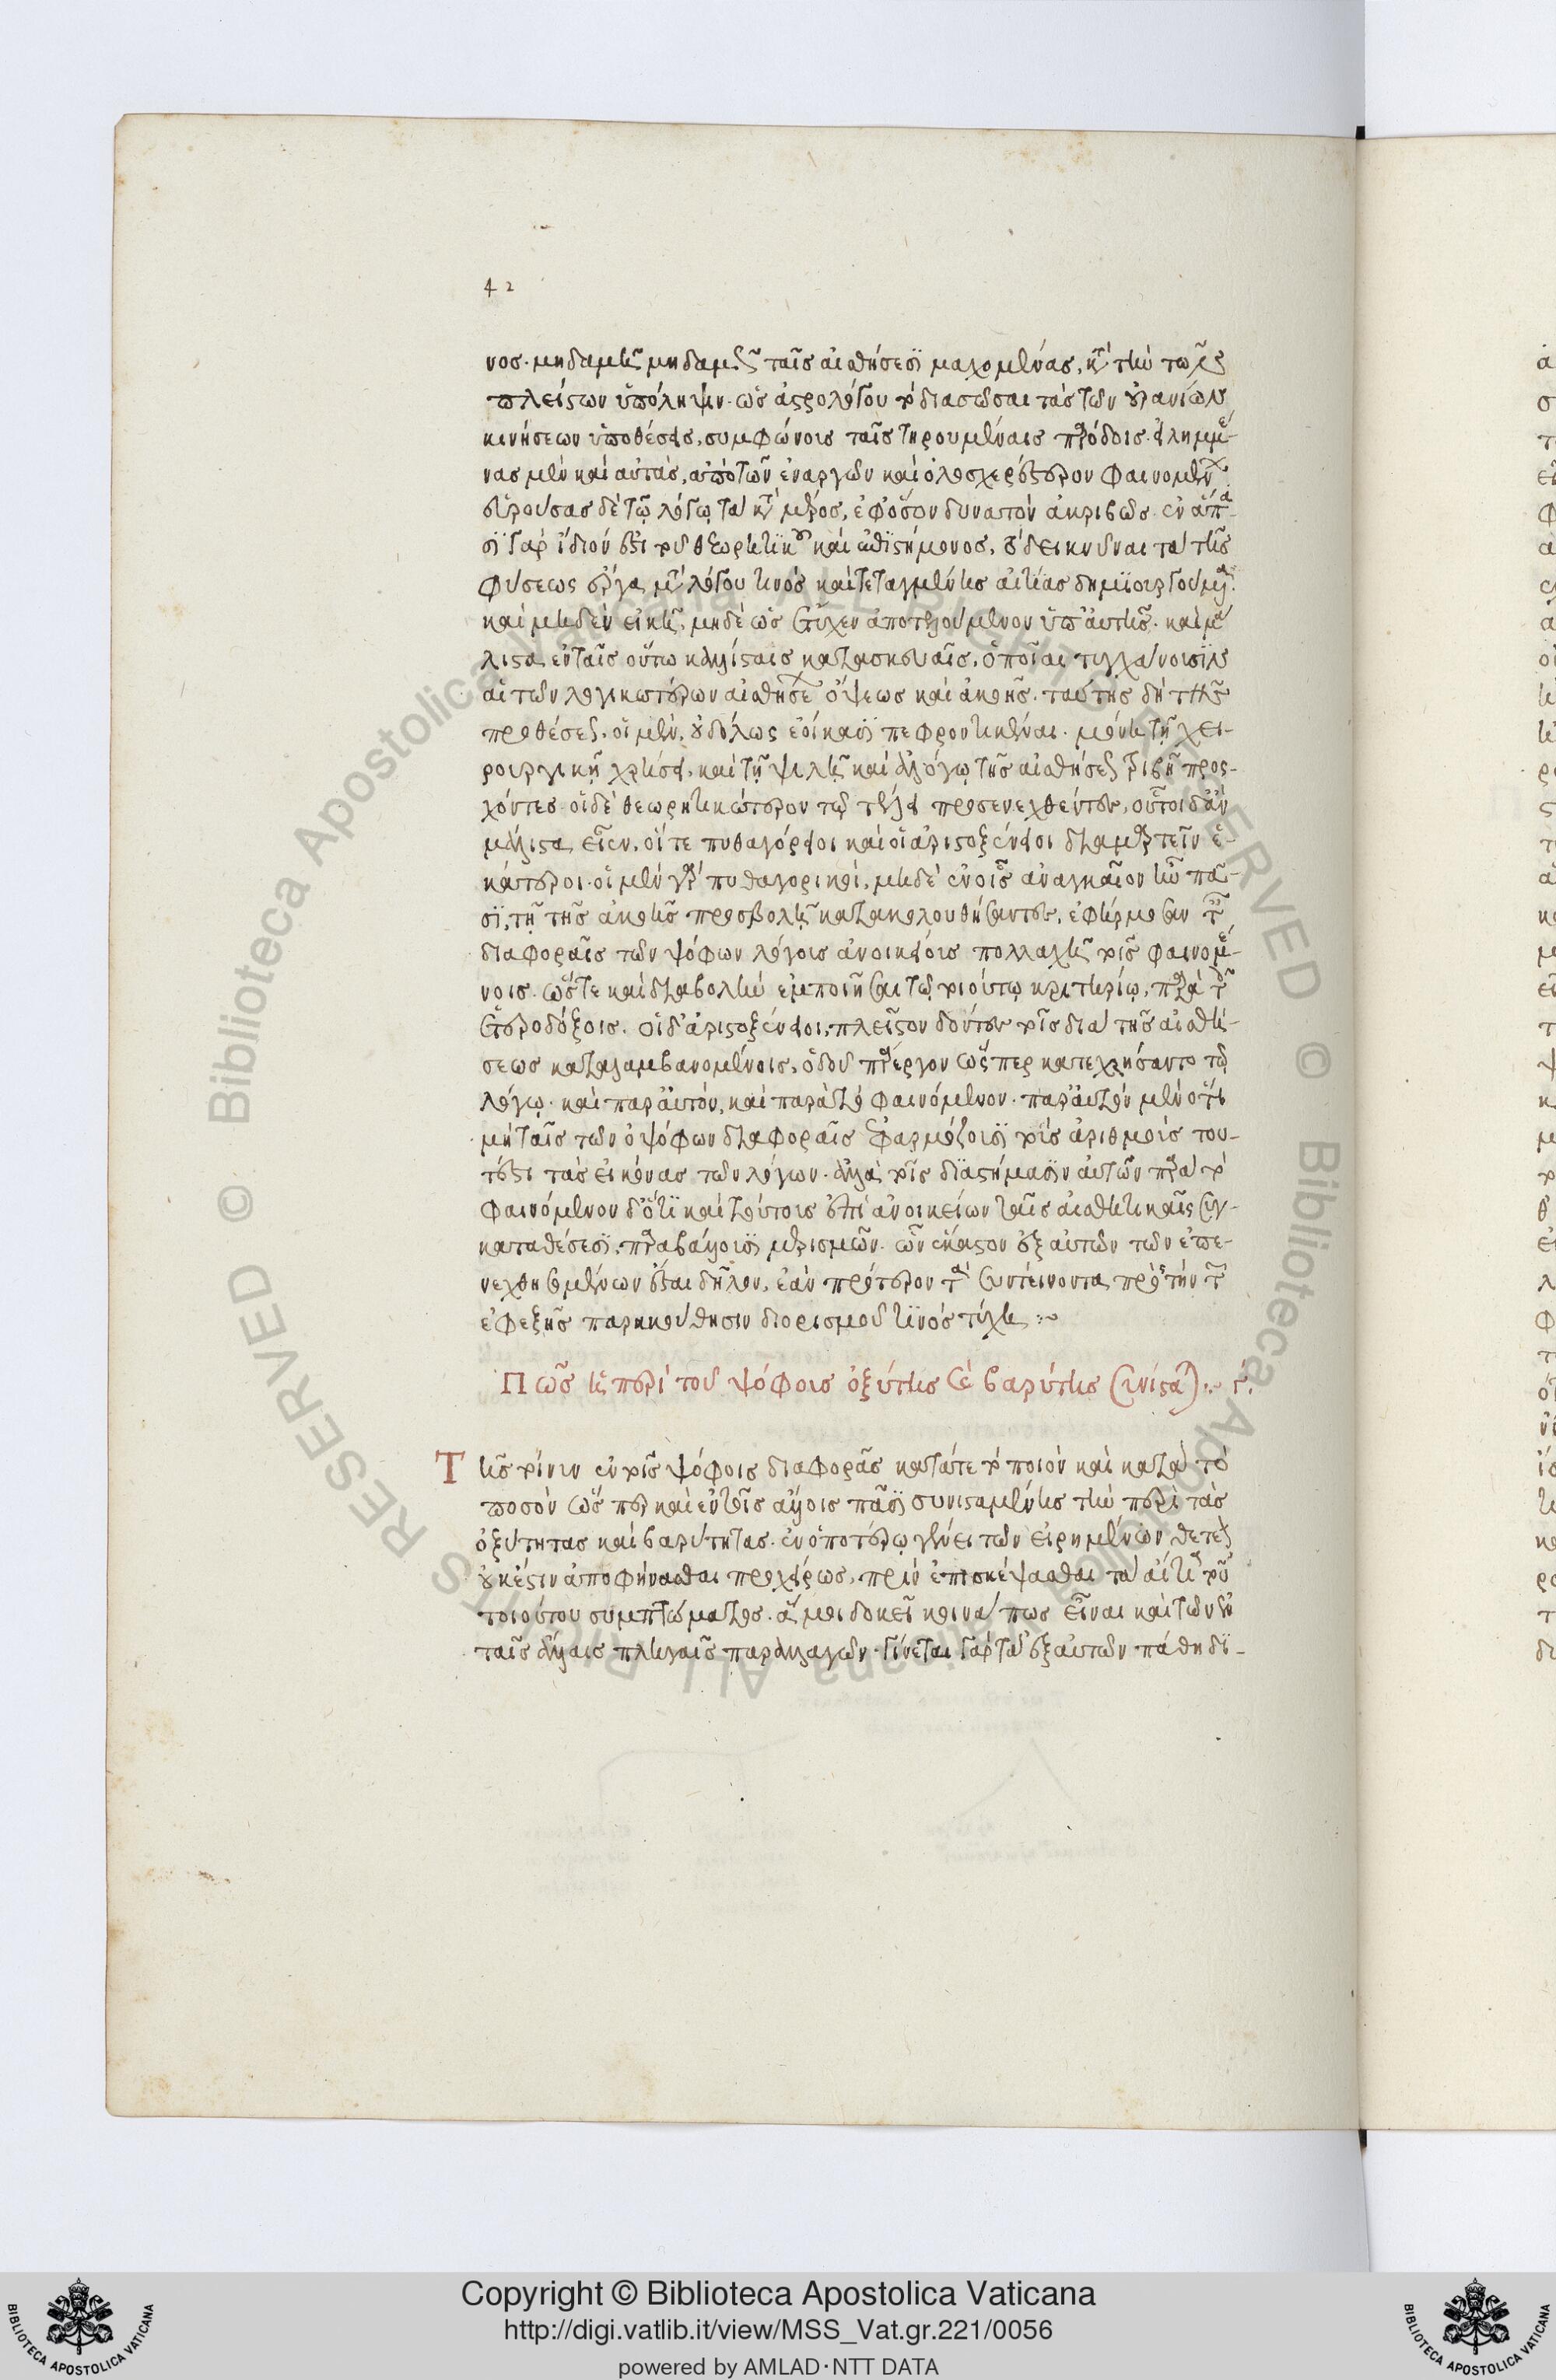 42
νος· μηδαμῆ μηδαμῶς ταῖς αἰσθήσεσι μαχομένας, κατὰ τὴν τῶν
πλείστων ὑπόληψιν· ὡς ἀστρολόγου τὸ διασῶσαι τὰς τῶν οὐρανίων
κινήσεων ὑποθέσεις, συμφώνους ταῖς τηρουμέναις παρόδοις· εἰλημμέ-
νας μὲν καὶ αὐτὰς, ἀπὸ τῶν ἐναργῶν καὶ ὁλοσχερέστερον φαινομένων·
εὑρούσας δὲ τῷ λόγῳ τὰ κατὰ μέρος, ἐφ' ὅσον δυνατὸν ἀκριβῶς· ἐν ἅπα-
σι γὰρ ἴδιόν ἐστι τοῦ θεωρητικοῦ καὶ ἐπιστήμονος, τὸ δεικνύναι τὰ τῆς
φύσεως ἔργα, μετὰ λόγου τινὸς καὶ τεταγμένης αἰτίας δημιουργούμενα·
καὶ μηδὲν εἰκῆ, μηδὲ ὡς ἔτυχεν ἀποτελούμενον ὑπ' αὐτῆς· καὶ μά
λιστα, ἐν ταῖς οὕτω καλλίσταις κατασκευαῖς, ὁποῖαι τυγχάνουσιν
αἱ τῶν λογικωτέρων αἰσθήσεων ὄψεως καὶ ἀκοῆς. ταύτης δὴ τῆς
προθέσεως, οἱ μὲν, οὐδόλως ἐοίκασι πεφροντικέναι· μόνη τῇ χει-
ρουργικῇ χρήσει, καὶ τῇ ψιλῇ καὶ ἀλόγῳ τῆς αἰσθήσεως τριβῇ προσ-
χόντες· οἱ δὲ θεωρητικώτερον τῷ τέλει προσενεχθέντες, οὗτοι δ' ἂν
μάλιστα εἶεν, οἵ τε πυθαγόρειοι καὶ οἱ ἀριστοξένειοι διαμαρτεῖν ἑ-
κάτεροι· οἱ μὲν γὰρ πυθαγορικοὶ, μηδὲ ἐν οἷς ἀναγκαῖον ἦν πᾶ-
σι, τῇ τῆς ἀκοῆς προσβολῇ κατακολουθήσαντες, ἐφήρμοσαν ταῖς
διαφοραῖς τῶν ψόφων λόγους ἀνοικείους πολλαχῇ τοῖς φαινομέ-
νοις. ὥστε καὶ διαβολὴν ἐμποιῆσαι τῷ τοιούτῳ κριτηρίῳ, παρὰ τοῖς
ἑτεροδόξοις. οἱ δ' ἀριστοξένειοι, πλεῖστον δόντες τοῖς διὰ τῆς αἰσθή-
σεως καταλαμβανομένοις, ὁδοῦ πάρεργον ὥσπερ κατεχρήσαντο τῷ
λόγῳ· καὶ παρ' αὐτὸν, καὶ παρὰ τὸ φαινόμενον· παρ' αὐτὸν μὲν ὅτι
μὴ ταῖς τῶν ψόφων διαφοραῖς ἐφαρμόζουσι τοὺς ἀριθμοὺς του-
τέστι τὰς εἰκόνας τῶν λόγων· ἀλλὰ τοῖς διαστήμασιν αὐτῶν παρὰ τὸ
φαινόμενον δ' ὅτι καὶ τούτους ἐπὶ ἀνοικείων ταῖς αἰσθητικαῖς συγ-
καταθέσεσι, παραβάλλουσι μερισμῶν· ὧν ἕκαστον ἐξ αὐτῶν τῶν ἐπε-
νεχθησομένων ἔσται δῆλον, ἐὰν πρότερον τὰ συντείνοντα πρὸς τὴν τῶν
ἐφεξῆς παρακολούθησιν διορισμοῦ τινὸς τύχῃ :~
Πῶς ἡ περὶ τοὺς ψόφους ὀξύτης καὶ βαρύτης συνίσταται :~ γ.
Τῆς τοίνυν ἐν τοῖς ψόφοις διαφορᾶς κατά τε τὸ ποιὸν καὶ κατὰ τὸ
ποσὸν ὥσπερ καὶ ἐν τοῖς ἄλλοις πᾶσι συνισταμένης τὴν περὶ τὰς
ὀξύτητας καὶ βαρύτητας· ἐν ὁποτέρῳ γένει τῶν εἰρημένων θετέον
οὐκ ἔστιν ἀποφήνασθαι προχείρως, πρὶν ἐπισκέψασθαι τὰ αἴτια τοῦ
τοιούτου συμπτώματος. ἅ μοι δοκεῖ κοινά πως εἶναι καὶ τῶν ἐν
ταῖς ἄλλαις πληγαῖς παραλλαγῶν· γίνεται γὰρ τὰ ἐξ αὐτῶν πάθη δι-
Copyright © Biblioteca Apostolica Vaticana
http://digi.vatlib.it/view/MSS_Vat.gr.221/0056
powered by AMLAD·NTT DATA